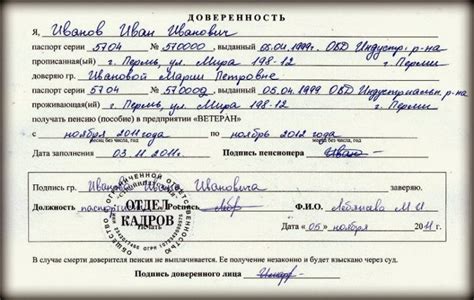 ДОВЕРЕННОСТЬ
Я, Иванов Иван Иванович
паспорт серии 5704 № 570000, выданный 05.04.1999 ОВД Индустр. р-на
прописанный(ая) г. Пермь, ул. Мира 198-12 г. Перми
доверяю гр. Ивановой Марии Петровне
паспорт серии 5704 № 570000, выданный 05.04.1999 ОВД Индустриальн. р-на
проживающий(ая) г. Пермь, ул. Мира 198-12 г. Перми
получать пенсию (пособие) в предприятии «ВЕТЕРАН»
с ноября 2011 года по ноябрь 2012 года
месяц без числа, год месяц без числа, год
Дата заполнения 03.11.2011г. Подпись пенсионера
Подпись гр. Иванова Ивана Ивановича заверяю.
Должность Роспись Ф.И.О.
ОТДЕЛ КАДРОВ
Печать «05» ноября 2011 г.
В случае смерти доверителя пенсия не выплачивается. Ее получение незаконно и будет взыскано через суд.
Подпись доверенного лица